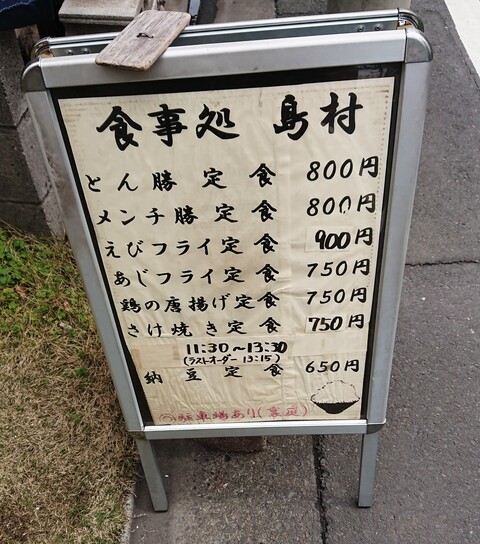 食事処 島村
とん勝定食 800円
メンチ勝定食 800円
えびフライ定食 900円
あじフライ定食 750円
鶏の唐揚げ定食 750円
さけ焼き定食 750円
11:30〜13:30
(ラストオーダー 13:15)
納豆定食 650円
駐車場あり(裏通)